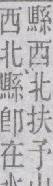 縣西北扶予山
西北縣卽在